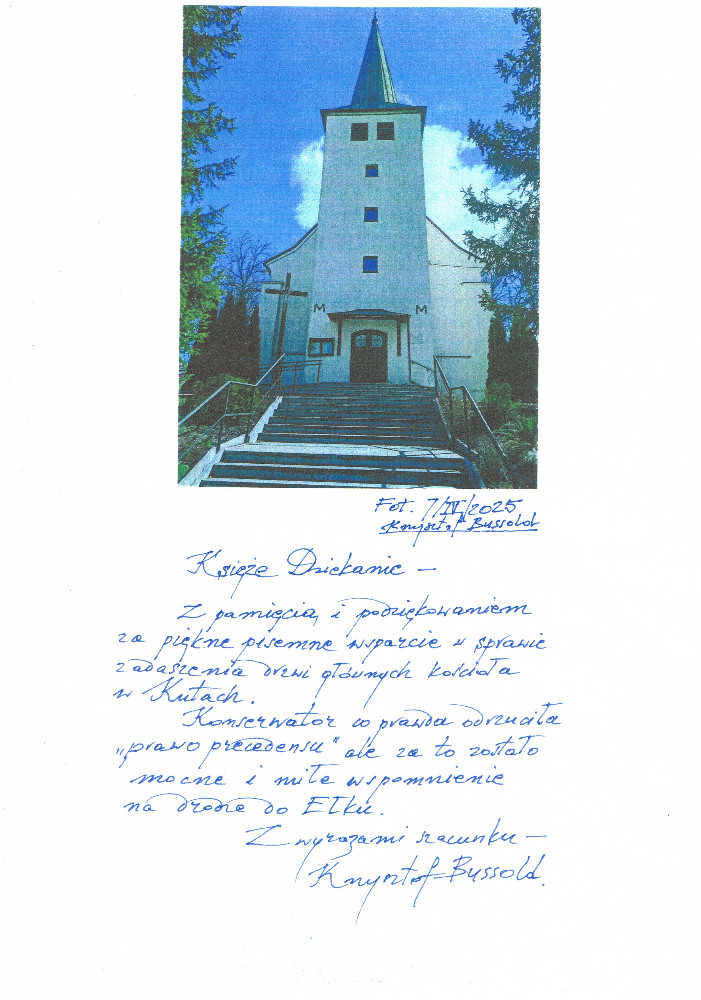 M M
Fot. 7/IV/2025
Krzysztof Bussold
Księże Dziekanie –
Z pamięcią i podziękowaniem
za piękne pisemne wsparcie w sprawie
zadaszenia drzwi głównych kościoła
w Kutach.
Konserwator co prawda odrzuciła
„prawo precedensu" ale za to zostało
mocne i miłe wspomnienie
na drodze do Ełku.
Z wyrazami szacunku –
Krzysztof Bussold.